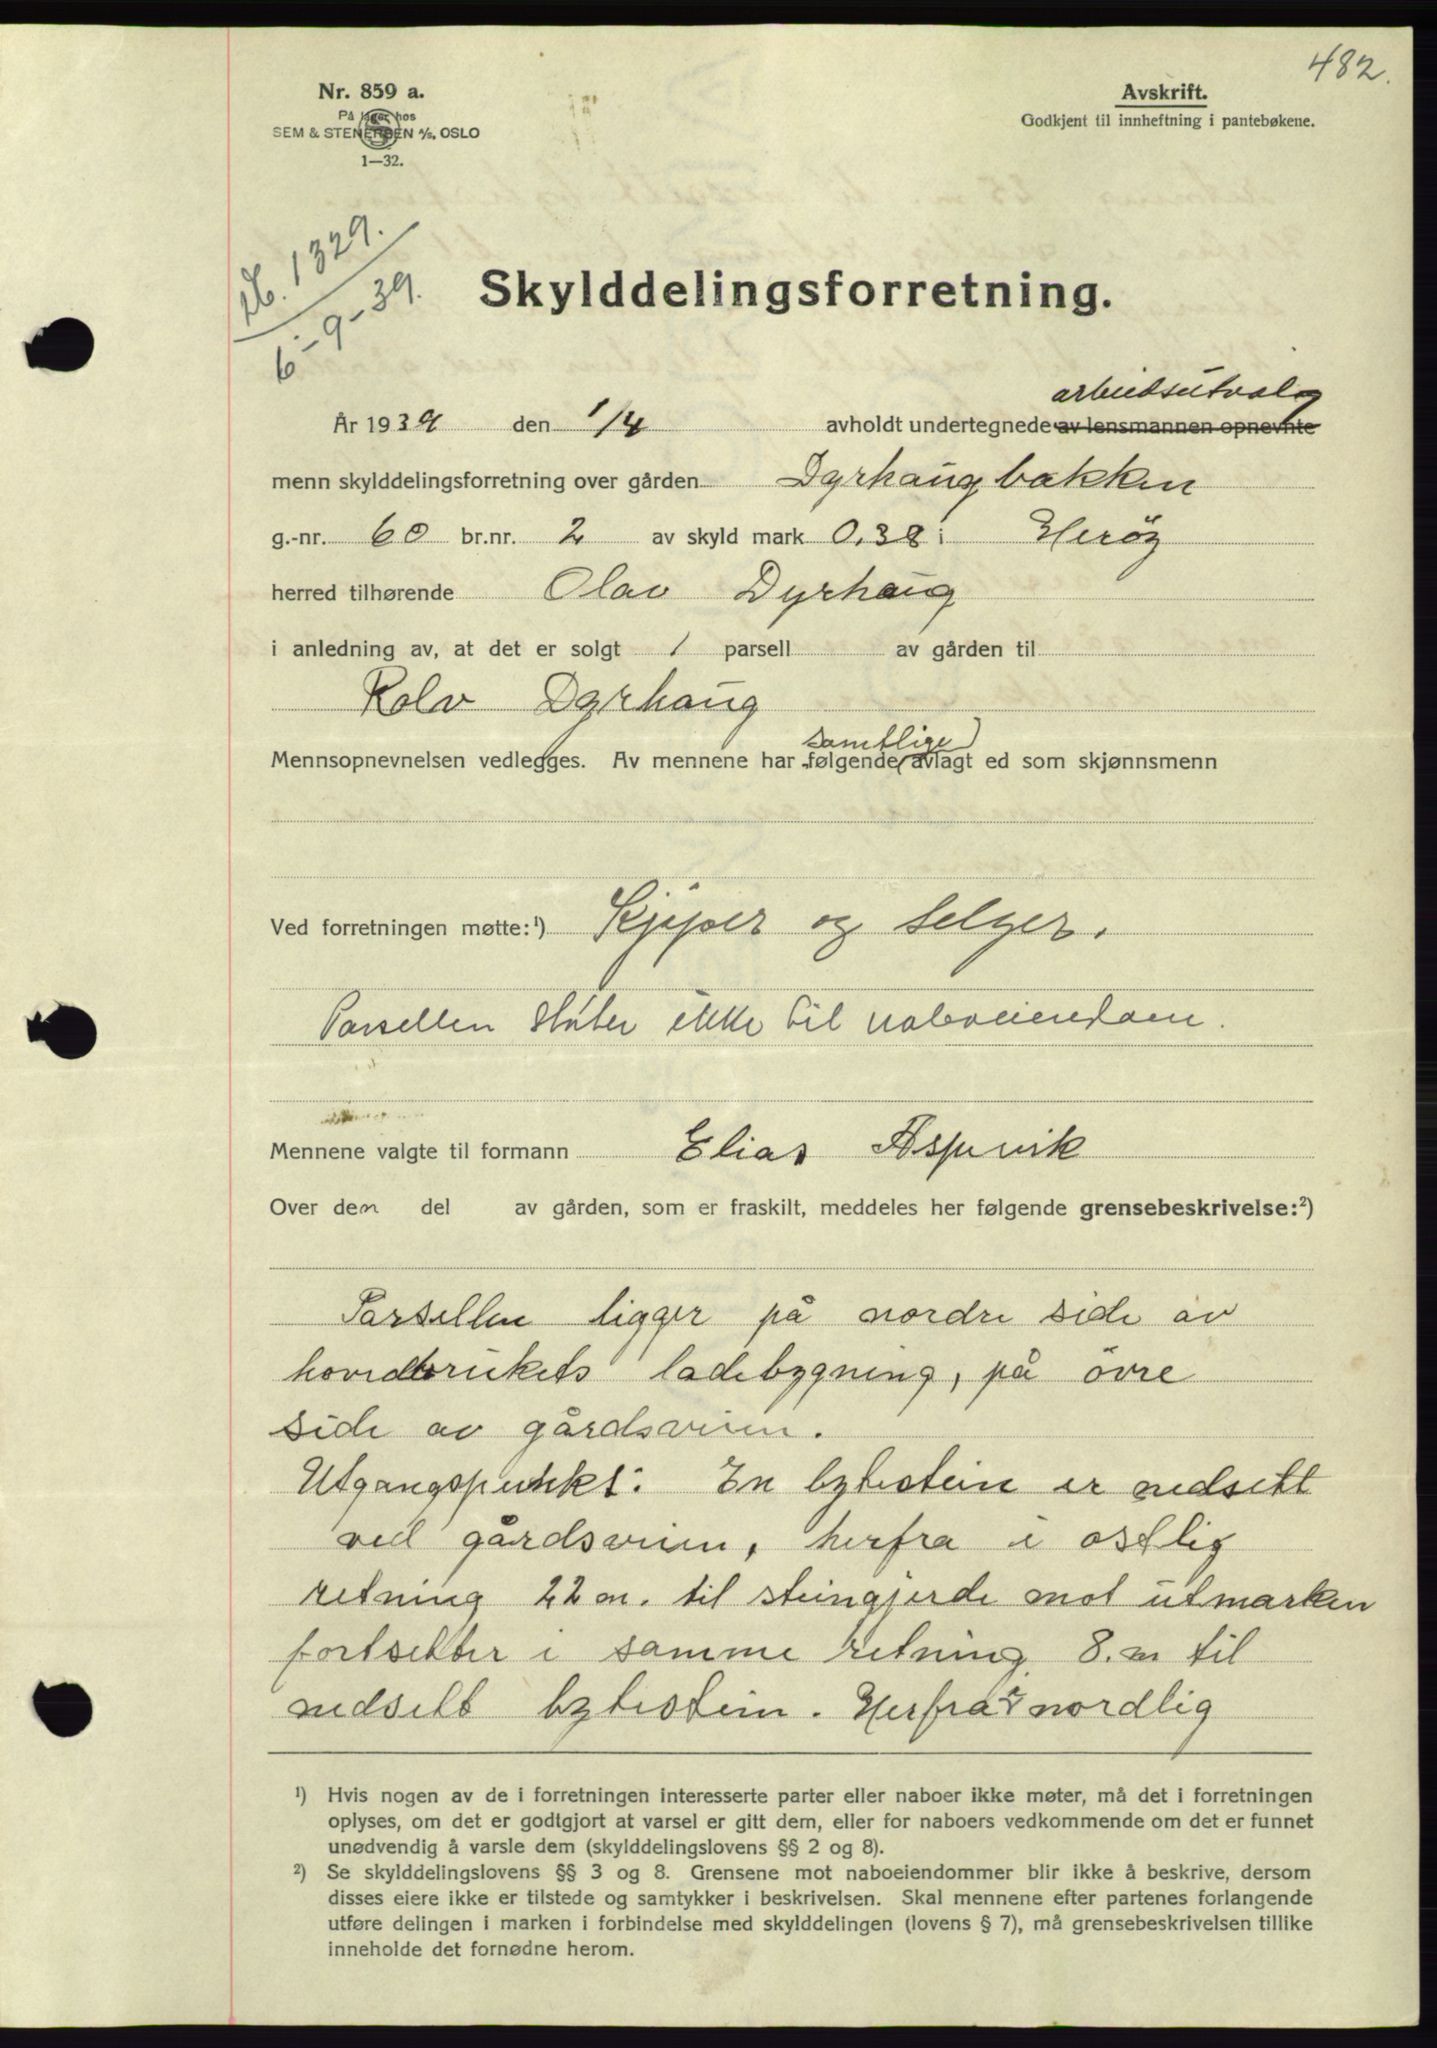 482.
Nr. 859 a.
På lager hos
SEM & STENERSEN A/S, OSLO
1—32.
Avskrift.
Godkjent til innheftning i pantebøkene.
1329.
6-9-39.
Skylddelingsforretning.
arbeidsutvalg
År 1939 den 1/4 avholdt undertegnede av lensmannen opnevnte
menn skylddelingsforretning over gården Dyrhaugbakken
g.-nr. 60 br.nr. 2 av skyld mark 0,38 i Herøy
herred tilhørende Olav Dyrhaug
i anledning av, at det er solgt 1 parsell av gården til
Rolv Dyrhaug
samtlige
Mennsopnevnelsen vedlegges. Av mennene har følgende avlagt ed som skjønnsmenn
Ved forretningen møtte:¹) Kjøper og selger.
Parsellen støter ikke til naboeiendom.
Mennene valgte til formann Elias Aspevik
Over den del av gården, som er fraskilt, meddeles her følgende grensebeskrivelse:²)
Parsellen ligger på nordre side av
hovedbrukets ladebygning, på övre
side av gårdsveien.
Utgangspunkt: En bytestein er nedsett
ved gårdsveien, herfra i ostlig
retning 22 m. til steingjerde mot utmarken
fortsetter i samme retning 8. m til
nedsett bytestein. Herfra i nordlig
¹) Hvis nogen av de i forretningen interesserte parter eller naboer ikke møter, må det i forretningen
oplyses, om det er godtgjort at varsel er gitt dem, eller for naboers vedkommende om det er funnet
unødvendig å varsle dem (skylddelingslovens §§ 2 og 8).
²) Se skylddelingslovens §§ 3 og 8. Grensene mot naboeiendommer blir ikke å beskrive, dersom
disses eiere ikke er tilstede og samtykker i beskrivelsen. Skal mennene efter partenes forlangende
utføre delingen i marken i forbindelse med skylddelingen (lovens § 7), må grensebeskrivelsen tillike
inneholde det fornødne herom.